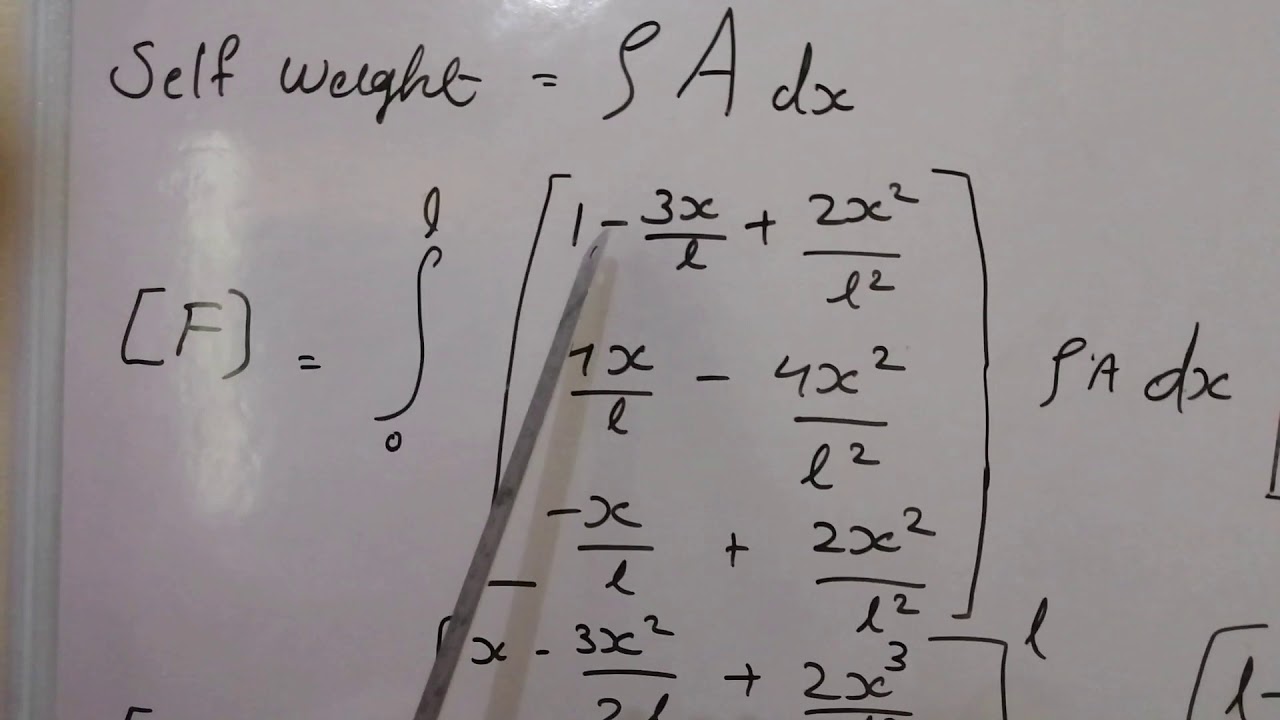 Self weight = ρ A dx
[F] = ∫₀ˡ [ 1 - 3x/l + 2x²/l²
4x/l - 4x²/l²
-x/l + 2x²/l² ] ρ A dx
[ x - 3x²/2l + 2x³ ] l